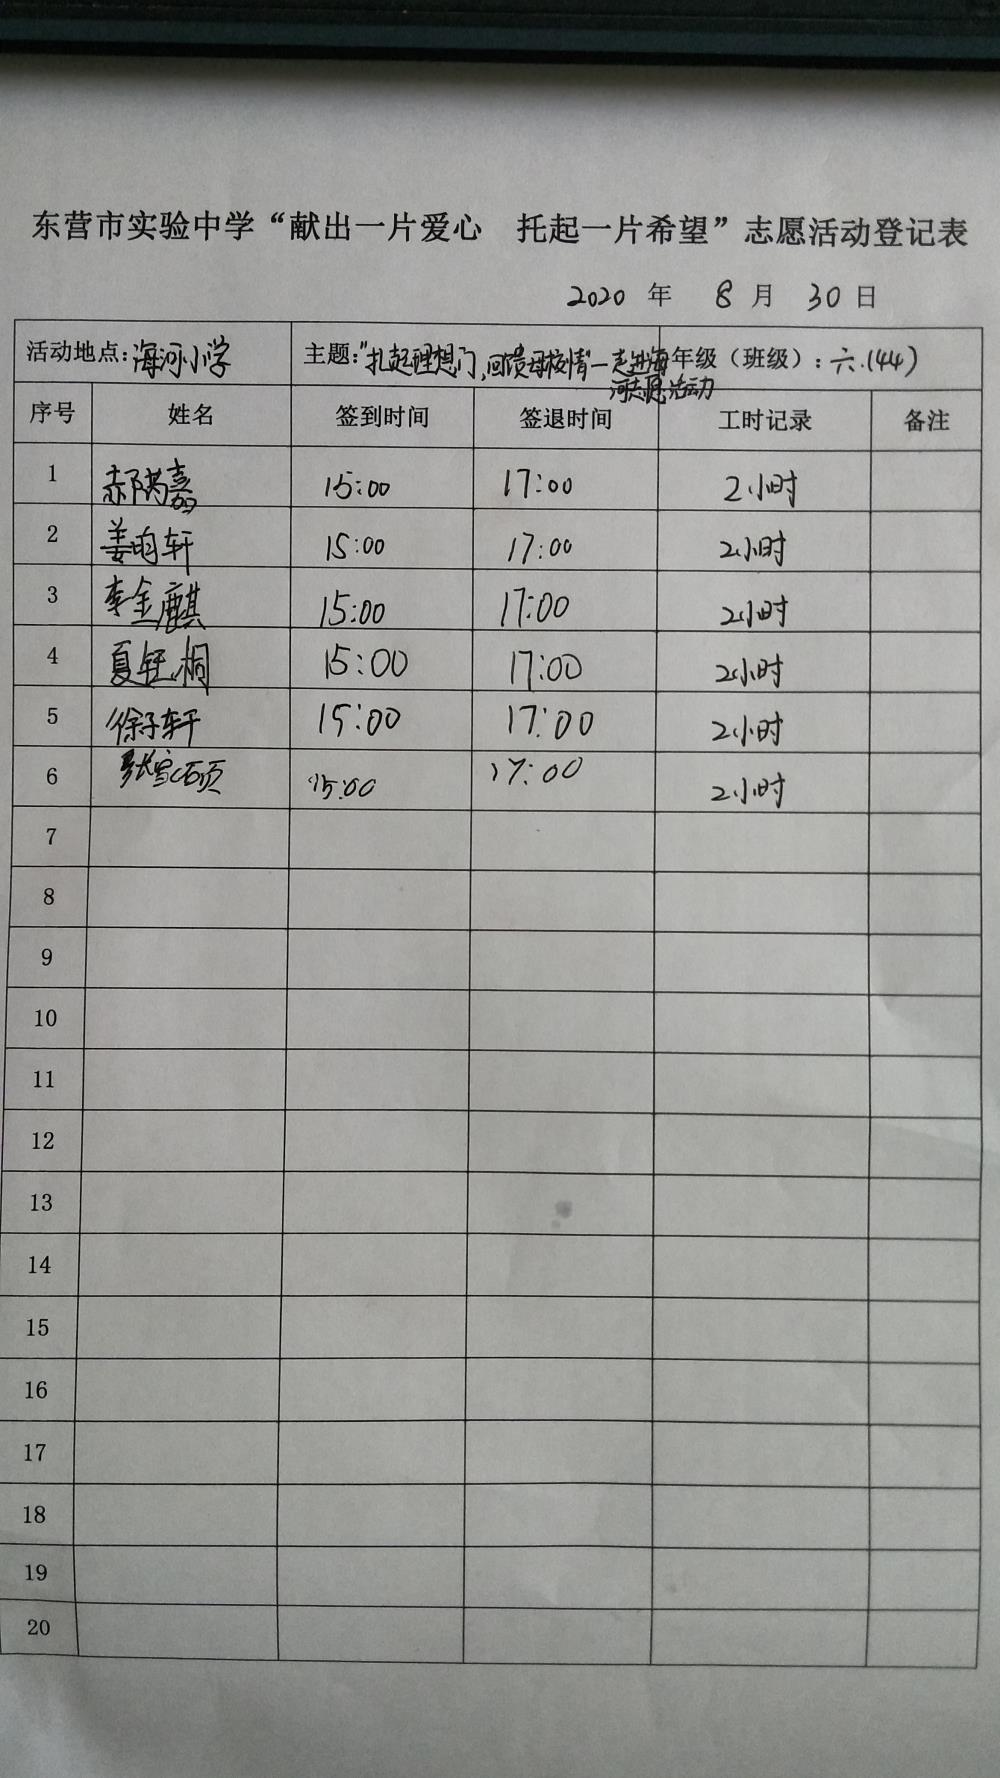 东营市实验中学“献出一片爱心　托起一片希望”志愿活动登记表
2020 年 8 月 30 日
活动地点：海河小学 主题：“扎起理想门，回馈母校情”—走进海 年级（班级）：六.(44)
河志愿活动
序号 姓名 签到时间 签退时间 工时记录 备注
1 郝芮嘉 15:00 17:00 2小时
2 姜昀轩 15:00 17:00 2小时
3 李金麒 15:00 17:00 2小时
4 夏钰桐 15:00 17:00 2小时
5 徐子轩 15:00 17:00 2小时
6 张家硕 15:00 17:00 2小时
7
8
9
10
11
12
13
14
15
16
17
18
19
20